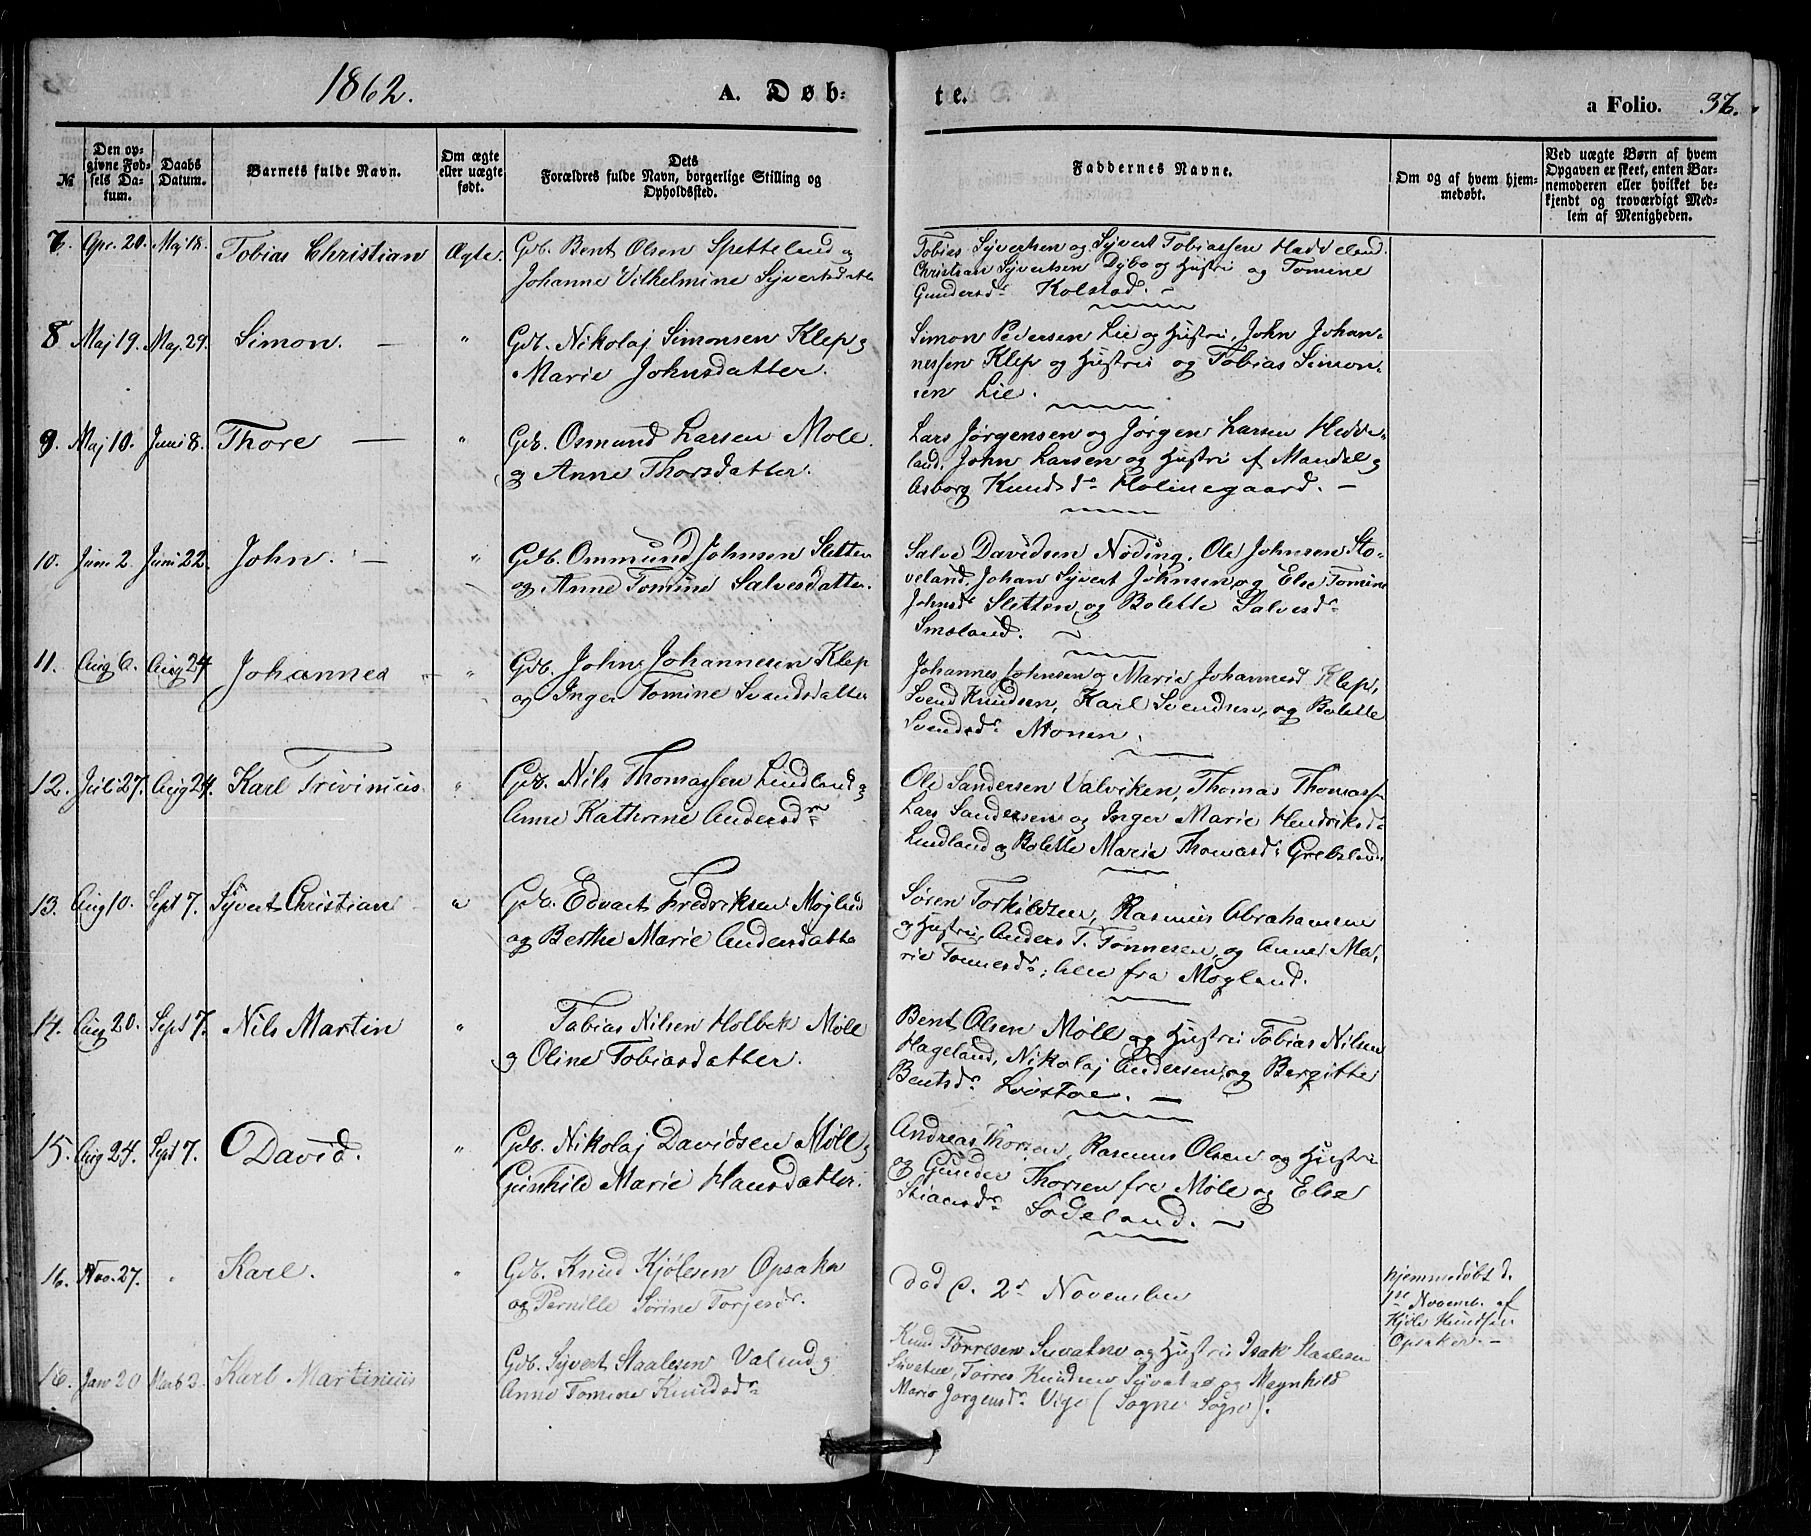 1862.
A. Døb-
te.
a Folio. 36.
№
Den op-
givne Fød-
sels Da-
tum.
Daabs
Datum.
Barnets fulde Navn.
Om ægte
eller uægte
født.
Dets
Forældres fulde Navn, borgerlige Stilling og
Opholdssted.
Faddernes Navne.
Om og af hvem hjem-
medøbt.
Ved uægte Børn af hvem
Opgaven er skeet, enten Bar-
nemoderen eller hvilket be-
kjendt og troværdigt Med-
lem af Menigheden.
7. Apr. 20. Maj 18. Tobias Christian Ægte.
Gdb. Bent Olsen Spetteland og
Johanne Vilhelmine Syvertsdatter
Tobias Syvertsen og Syvert Tobiassen Haddeland.
Christian Syvertsen Dybo og Hustru og Tomine
Gundersdr Kolstad. -
8 Maj 19. Maj. 29. Simon. — "
Gdb. Nikolaj Simonsen Klep og
Marie Johnsdatter.
Simon Pedersen Lie og Hustru, John Johan-
nessen Klep og Hustru og Tobias Simon-
sen Lie.
9. Maj 10. Juni 8. Thore — "
Gdb. Osmund Larsen Mole.
og Anne Thorsdatter.
Lars Jørgensen og Jørgen Larsen Hedde-
land. John Larsen og Hustru af Mandal og
Asborg Knudsdr Holmegaard. —
10. Juni 2. Juni 22. John. — "
Gdb. Ommund Johnsen Sletten
og Anne Tomine Salvesdatter.
Salve Davidsen Nøding, Ole Johnsen Sto-
veland, Johan Syvert Johnsen og Else Tomine
Johnsdr Sletten og Bolette Salvesdr
Smaland.
11. Aug 6. Aug 24 Johannes "
Gdb. John Johannesen Klep
og Inger Tomine Svendsdatter
Johannes Johnsen og Marie Johannesd Klep,
Svend Knudsen, Karl Svendsen, og Bolette
Svendsdr Monen.
12. Juli 27. Aug 24. Karl Trivinius "
Gdb. Nils Thomassen Lindland og
Anne Kathrine Andersdr
Ole Sandersen Valviken, Thomas Thomass
Lars Sandersen og Inger Marie Hendriksdr
Lindland og Bolette Marie Thomasdr Grebsland
13. Aug 10. Sept 7. Syvert Christian "
Gdb. Edvart Fredriksen Møglnd
og Berthe Marie Andersdatter
Søren Torkildsen, Rasmus Abrahamsen
og Hustru, Anders T. Tønnesen, og Anne Ma-
rie Tønnesdr, alle fra Møgland.
14. Aug 20. Sept 7. Nils Martin "
Tobias Nilsen Holbek Møll
og Oline Tobiasdatter.
Bent Olsen Møll og Hustru Tobias Nilsen
Hageland, Nikolaj Andersen, og Bergitte
Bentsdr Løvstoe. —
15. Aug 24. Sept 7. David. "
Gdb. Nikolaj Davidsen Møll og
Gunhild Marie Hansdatter.
Andreas Thorsen, Rasmus Olsen og Hustru
og Gunder Thorsen fra Møle og Else
Stiansdr Sodeland. —
16. Nov. 27. " Karl. "
Gdb. Knud Kjølesen Opsahl
og Pernille Sørine Torjesdr.
død d. 2d November
hjemmedøbt d.
1ste Novemb. af
Kjøle Knudsen
Opsaker. —
16. Jan 20 Marts 2. Karl Martinius
Gdb. Syvert Staalesen Valand og
Anne Tomine Knudsdr
Knud Tørresen Suvatne og Hustru Isak Staalesen
Suvatne, Tørres Knudsen Suvatne og Magnhild
Marie Jørgensdr Vige (Søgne Sogn).